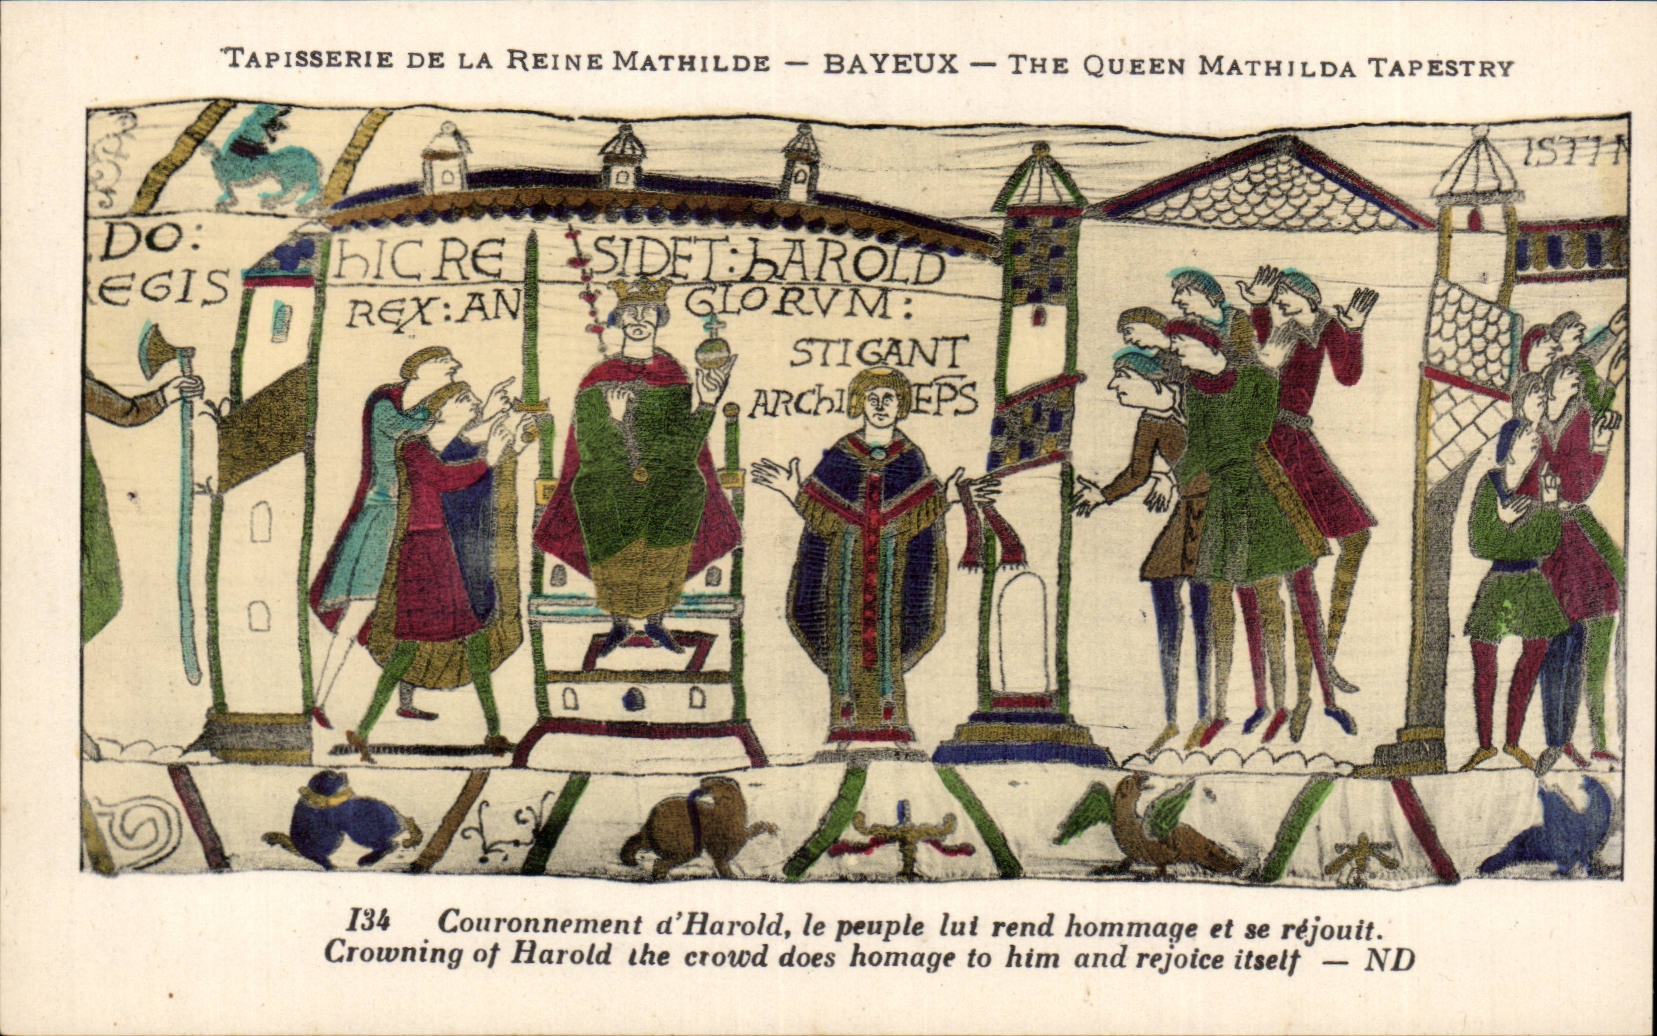 TAPISSERIE DE LA REINE MATHILDE — BAYEUX — THE QUEEN MATHILDA TAPESTRY
ISTI
DO:
EGIS
hIC RE SIDET: hAROLD
REX: AN GLORVM:
STIGANT
ARChI EPS
134 Couronnement d'Harold, le peuple lui rend hommage et se réjouit.
Crowning of Harold the crowd does homage to him and rejoice itself — ND